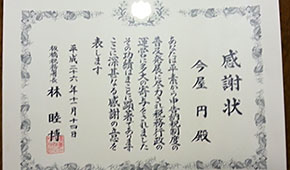 感謝状
今屋 円 殿
あなたは平素から申告納税制度の
普及発展に尽力され税務行政の
運営に多大な寄与をされました
その功績はまことに顕著であります
ここに深甚なる感謝の意を
表します
平成二十六年十一月十四日
板橋税務署長 林 睦博